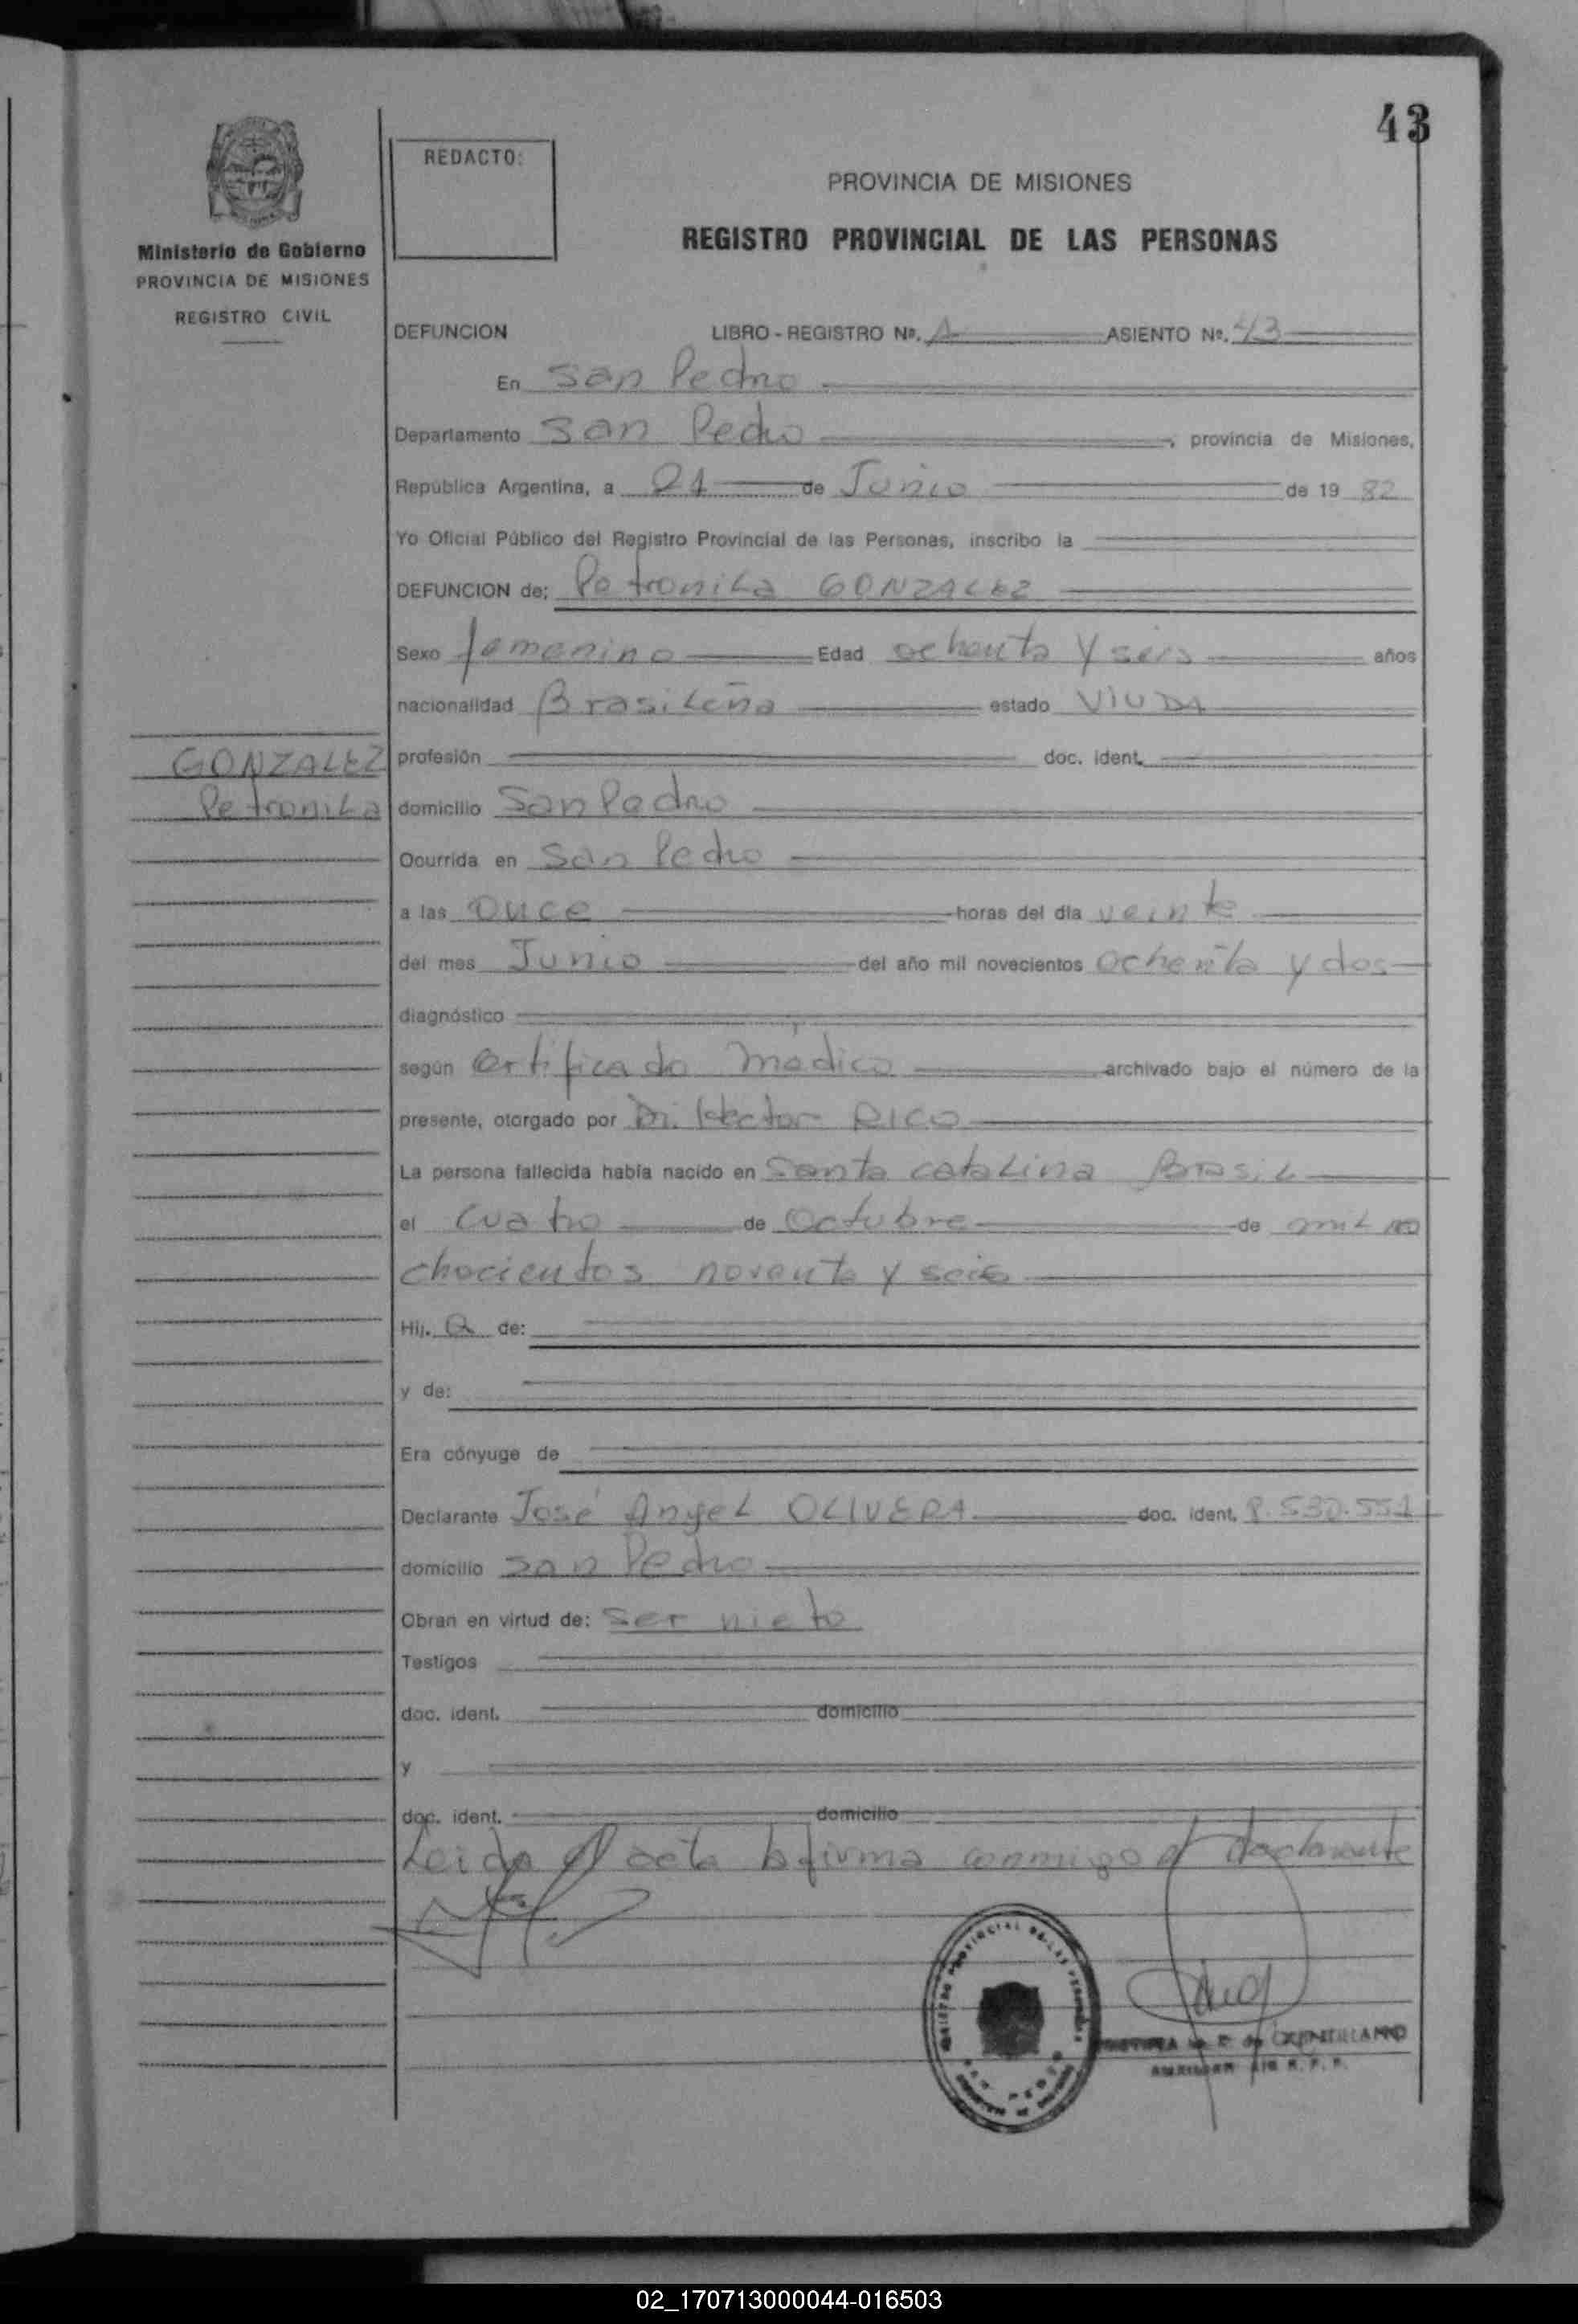 43
REDACTO:
PROVINCIA DE MISIONES
REGISTRO PROVINCIAL DE LAS PERSONAS
Ministerio de Gobierno
PROVINCIA DE MISIONES
REGISTRO CIVIL
DEFUNCION LIBRO - REGISTRO Nº. A ASIENTO Nº. 43
En San Pedro
Departamento San Pedro, provincia de Misiones,
República Argentina, a 21 de Junio de 19 82
Yo Oficial Público del Registro Provincial de las Personas, inscribo la
DEFUNCION de: Petronila GONZALEZ
Sexo femenino Edad ochenta y seis años
nacionalidad Brasileña estado VIUDA
GONZALEZ
Petronila
profesión doc. ident.
domicilio San Pedro
Ocurrida en San Pedro
a las once horas del día veinte
del mes Junio del año mil novecientos ochenta y dos
diagnóstico
según certificado médico archivado bajo el número de la
presente, otorgado por Dr. Hector RICO
La persona fallecida había nacido en Santa catalina Brasil
el cuatro de octubre de mil
chocientos noventa y seis
Hij. a de:
y de:
Era cónyuge de
Declarante José Angel OLIVERA doc. ident. 8.530.551
domicilio San Pedro
Obran en virtud de: ser nieto
Testigos
doc. ident. domicilio
y
doc. ident. domicilio
Leida el acta la firma conmigo el declarante
REGISTRO PROVINCIAL DE LAS PERSONAS
AUXILIAR R. P. P.
02_170713000044-016503